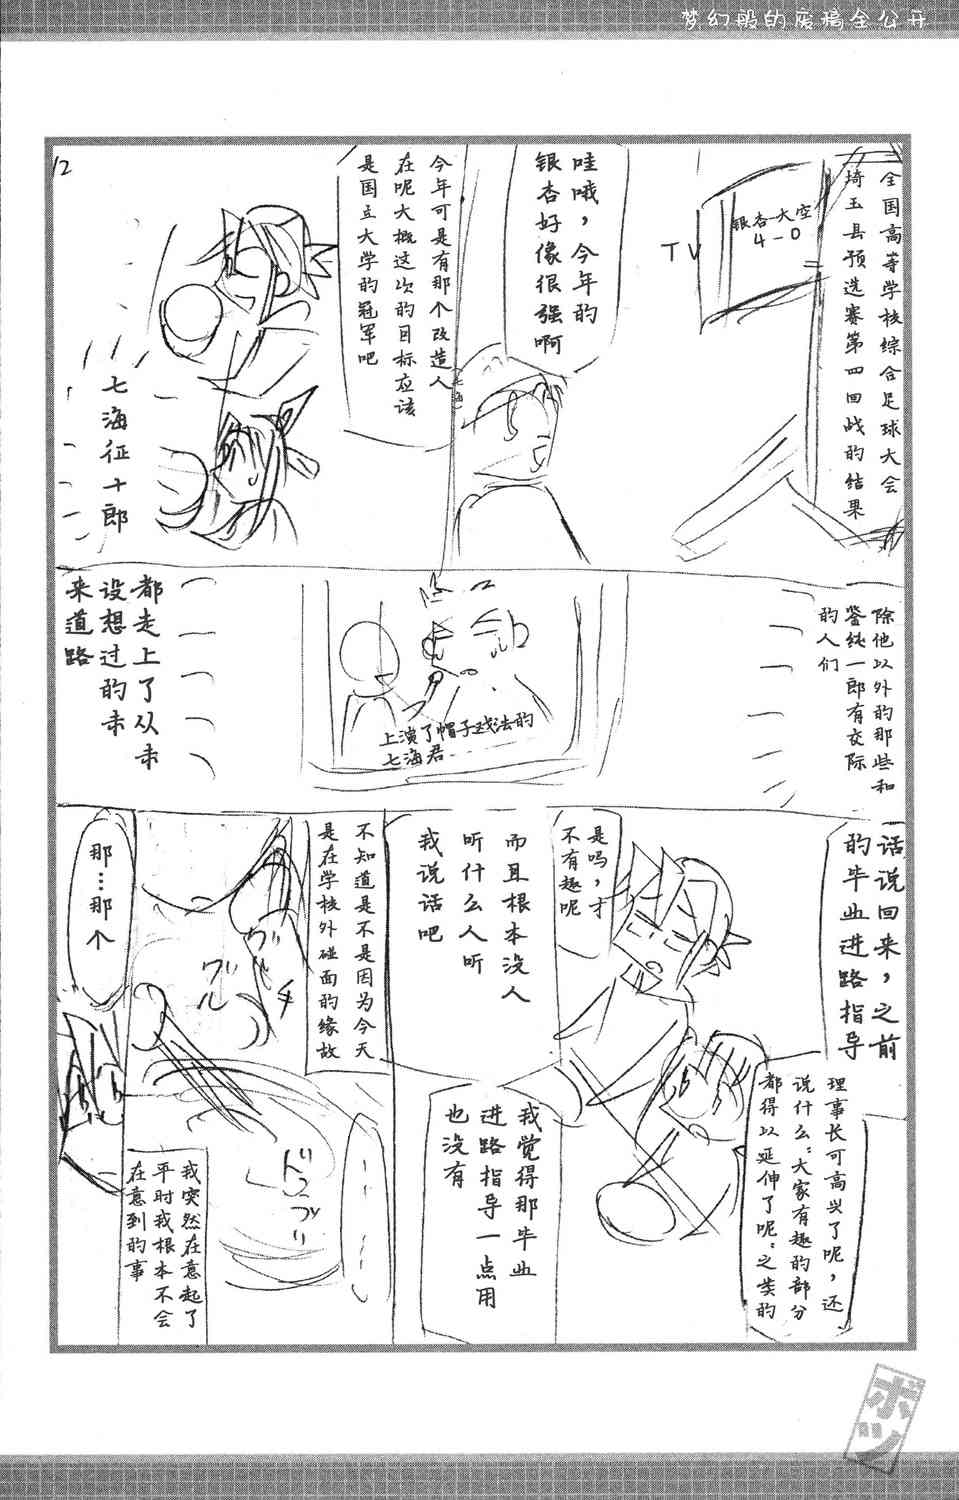 梦幻般的废稿全公开
12
全国高等学校综合足球大会
埼玉县预选赛第四回战的结果
银杏-大空
4-0
TV
哇哦，今年的
银杏好像很
强啊
今年可是有那个改造人
在呢大概这次的目标应该
是国立大学的冠军吧
七海
七海征十郎
除他以外的那些和
鉴纯一郎有交际
的人们
上演了帽子戏法的
七海君
都走上了从未
设想过的未
来道路
话说回来，之前
的毕业进路指导
理事长可高兴了呢，还
说什么:大家有趣的部分
都得以延伸了呢:之类的
是吗，才
不有趣呢
而且根本没人
听什么人听
我说话吧
我觉得那毕业
进路指导一点用
也没有
不知道是不是因为今天
是在学校外碰面的缘故
グル
グルキ
ドップリ
我突然在意起了
平时我根本不会
在意到的事
那…那
个
ボツ